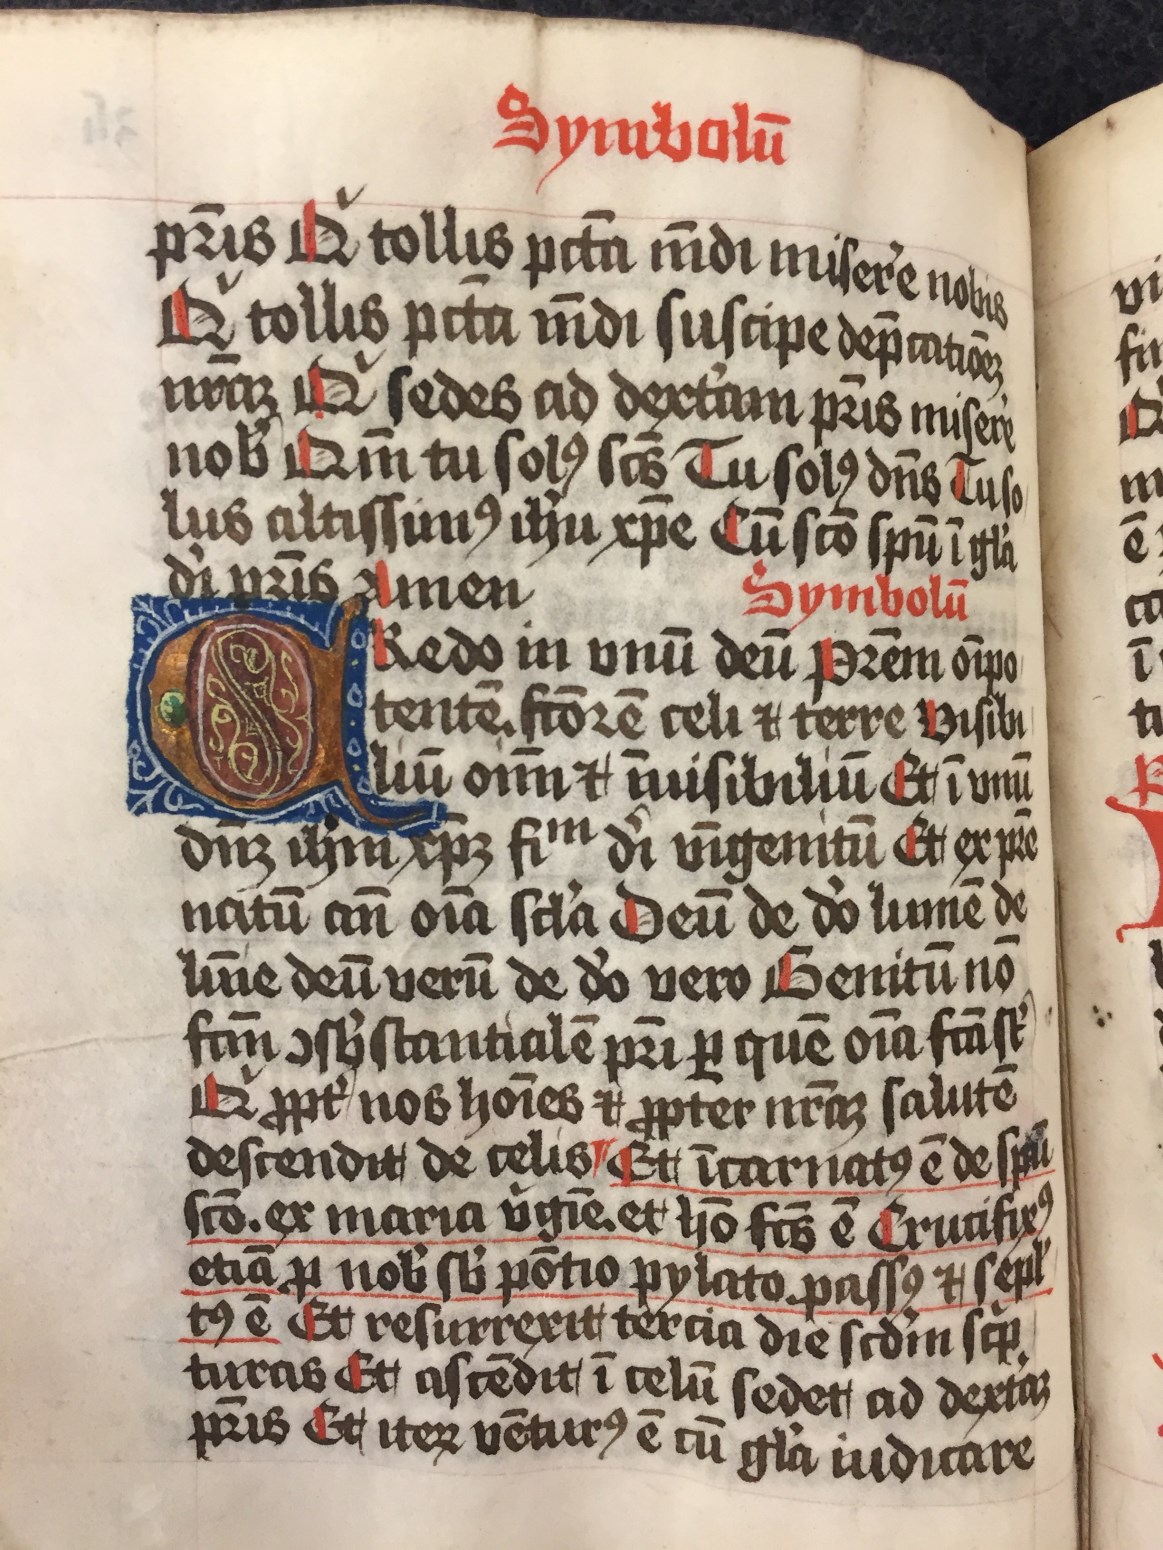 Symbolū
pr̄is Qͥ tollis pctā m̄di miserͤe nobis
Qͥ tollis pctā m̄di suscipe dep̄catiōeꝫ
nrāꝫ Qͥ sedes ad dextͣam pr̄is miserͤe
nob̾ Qm̄ tu solꝰ scs̄ Tu solꝰ dn̄s Tu so
lus altissimꝰ ihu xp̄e Cū scō spū ī gl̾a
di̾ pr̄is Amen
Symbolū
Redo in vnū deū Prēm oīpo
tentē. fcōꝛē celi ⁊ terre Visibi
liū oīm ⁊ īnuisibiliū Et ī vnū
dn̄ꝫ ihm xp̄ꝫ fiᵐ di̾ vnīgenitū Et ex pr̄e
natū an̄ oīa scl̾a Deū de do̾ lumē de
lūie deū verū de do̾ vero Genitū nō
fctm̄ ꝯsb̾stantialē pr̄i ꝑ quē oīa fctā st̾
Qͥ ꝓpt̾ nos hoīes ⁊ ꝓpter nrāꝫ salutē
descendit de celis Et īcarnatꝰ ē de spū
scō. ex maria vͥgīe. et hō fcs̄ ē Crucifixꝰ
etiā ꝓ nob̾ sb̾ pōtio pylato. passꝰ ⁊ sepl̾
tꝰ ē Et resurrexit tercia die scdm̾ scͥp
turas Et ascēdit ī celū sedet ad dextͣaꝫ
pr̄is Et iteꝝ vēturꝰ ē cū gl̾a iudicare